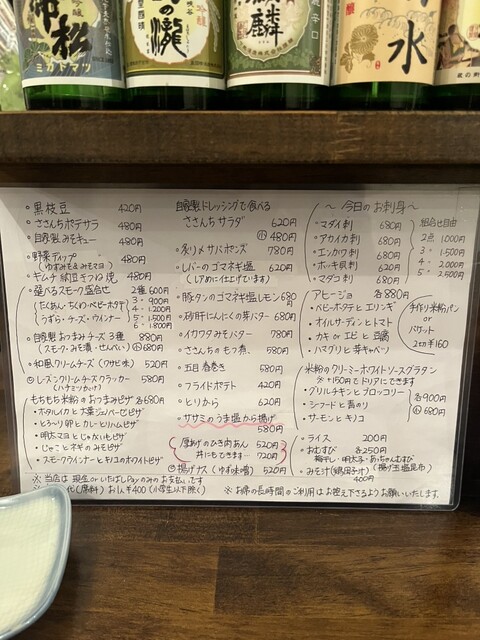 吟醸
帝松
ミカドマツ
の瀧
吟醸
麒麟
辛口
水
醸
蔵の町
・黒枝豆 420円
・ささんちポテサラ 480円
・自家製みそキュー 480円
・野菜ディップ 480円
(ゆずみそ&みそマヨ)
・キムチ納豆ぎつね焼 480円
・選べるスモーク盛合せ
たくあん・ちくわ・ベビーホタテ
うずら・チーズ・ウインナー
2種 600円
3・900円
4・1.200円
5・1.500円
6・1.800円
・自家製おつまみチーズ3種 880円
(スモーク・みそ漬・せんべい) ㋩680円
・和風クリームチーズ (ワサビ味) 520円
㋹レーズンクリームチーズクラッカー 580円
(ハチミツかけ)
もちもち米粉のおつまみピザ 各680円
・ホタルイカと大葉ジェノベーゼピザ
・とろ〜り卵とカレーとりハムピザ
・明太マヨとじゃがいもピザ
・じゃことネギのみそピザ
・スモークウインナーとキノコのホワイトピザ
自家製ドレッシングで食べる
ささんちサラダ 620円
㋩480円
・炙り〆サバポンズ 780円
・レバーのゴマネギ塩 620円
(レアめに仕上げています)
・豚タンのゴマネギ塩レモン 680円
・砂肝にんにくの芽バター 680円
・イカワタみそバター 780円
・ささんちのもつ煮 580円
・五目春巻き 580円
・フライドポテト 420円
・とりから 620円
・ササミのうま塩から揚げ
580円
厚揚げのひき肉あん 520円
丼にもできます… 720円
揚げナス(ゆず味噌) 520円
〜今日のお刺身〜
・マダイ刺 680円
・アカイカ刺 680円
・エンガワ刺 680円
・ホッキ貝刺 620円
・マダコ刺 680円
組合せ自由
2点 1.000円
3・1.500円
4・2.000円
5・2.500円
アヒージョ 各880円
・ベビーホタテとエリンギ
・オイルサーディンとトマト
・カキ or エビと豆腐
・ハマグリと芽キャベツ
手作り米粉パン
or
バケット
2切 ¥160
米粉のクリーミーホワイトソースグラタン
※+150円でドリアにできます
・グリルチキンとブロッコリー
・シーフードと青のり
・サーモンとキノコ
各900円
㋩680円
・ライス 200円
・おむすび 各250円
梅干し・明太子・あっちゃんむすび
(揚げ玉塩昆布)
・みそ汁(鶴田みそ汁)
400円
※当店は現金orいたばしPayのみのお支払いです
代(席料)お1人¥400(小学生以下除く)
※お席の長時間のご利用はお控え下さるようお願いいたします。